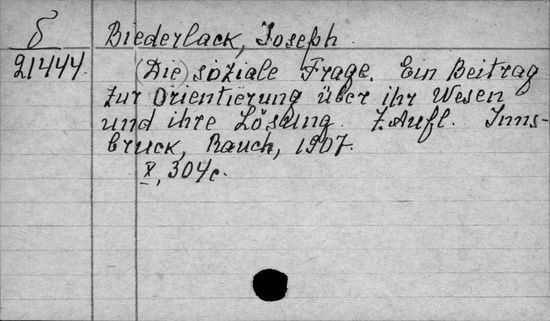 δ
21444
Biederlack, Joseph
(Die) soziale Frage. Ein Beitrag
zur Orientierung über ihr Wesen
und ihre Lösung. 7. Aufl. Inns-
bruck, Rauch, 1907.
X, 304 c.